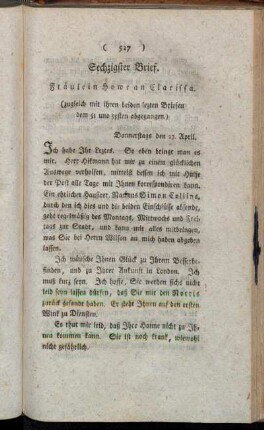 ( 527 )
Sechzigster Brief.
Fräulein Howe an Clarissa.
(zugleich mit ihren beiden lezten Briefen
dem 51 und 55sten abgegangen)
Donnerstags den 27. April.
Ich habe Ihr Leztes. So eben bringt man es
mir. Herr Hikmann hat mir zu einem glücklichen
Auswege verholfen, mittelst dessen ich mit Hülfe
der Post alle Tage mit Ihnen korrespondiren kann.
Ein ehrlicher Hausirer, Namens Simon Collins,
durch den ich dies und die beiden Einschlüsse absende,
geht regelmäßig des Montags, Mittwochs und Frei-
tags zur Stadt, und kann mir alles mitbringen,
was Sie bei Herrn Wilson an mich haben abgeben
lassen.
Ich wünsche Ihnen Glück zu Ihrem Besserbe-
finden, und zu Ihrer Ankunft in London. Ich
muß kurz seyn. Ich hoffe, Sie werden sichs nicht
leid seyn lassen dürfen, daß Sie mir den Norris
zurück gesandt haben. Er steht Ihnen auf den ersten
Wink zu Diensten.
Es thut mir leid, daß Ihre Hanne nicht zu Ih-
nen kommen kann. Sie ist noch krank, wiewohl
nicht gefährlich.